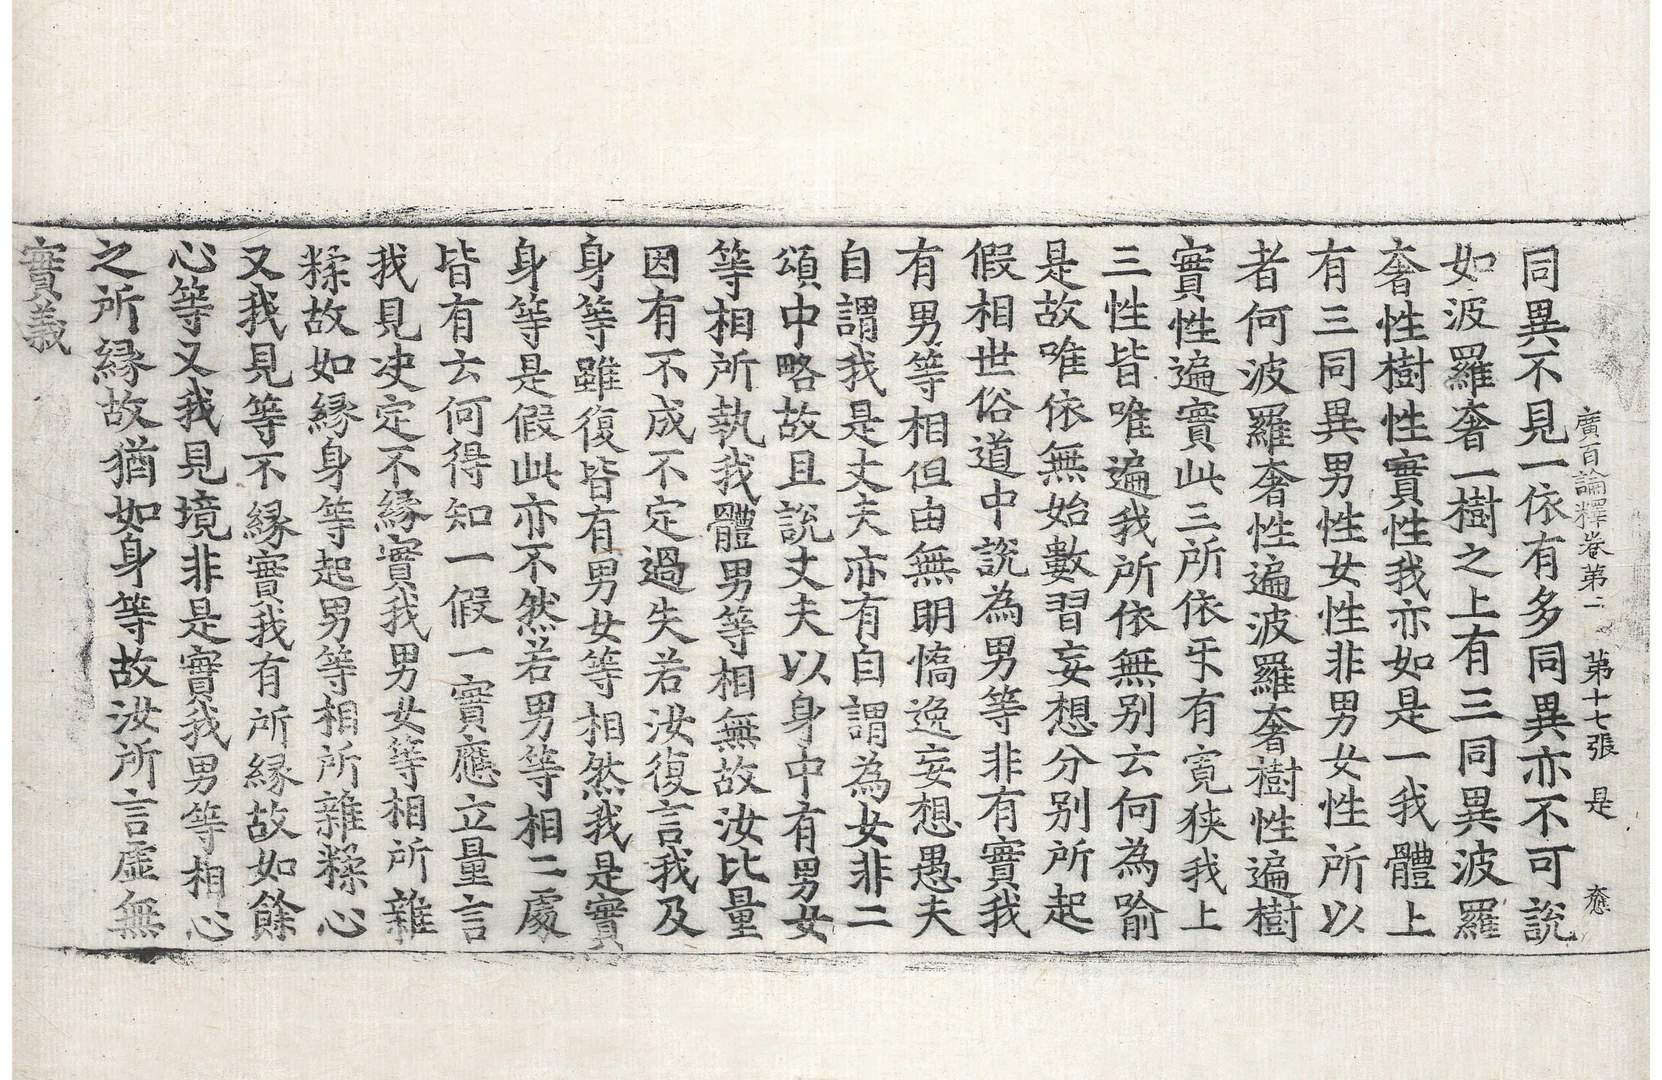 廣百論釋卷第二 第十七張 是
同異不見一依有多同異亦不可說
如波羅奢一樹之上有三同異波羅
奢性樹性實性我亦如是一我體上
有三同異男性女性非男女性所以
者何波羅奢性遍波羅奢樹性遍樹
實性遍實此三所依乐有寛狹我上
三性皆唯遍我所依無别云何為喻
是故唯依無始數習妄想分别所起
假相世俗道中說為男等非有實我
有男等相但由無明憍逸妄想愚夫
自謂我是丈夫亦有自謂為女非二
頌中略故且說丈夫以身中有男女
等相所執我體男等相無故汝比量
因有不成不定過失若汝復言我及
身等雖復皆有男女等相然我是實
身等是假此亦不然若男等相二處
皆有云何得知一假一實應立量言
我見决定不縁實我男女等相所雜
糅故如縁身等起男等相所雜糅心
又我見等不縁實我有所縁故如餘
心等又我見境非是實我男等相心
之所縁故猶如身等故汝所言虛無
實義